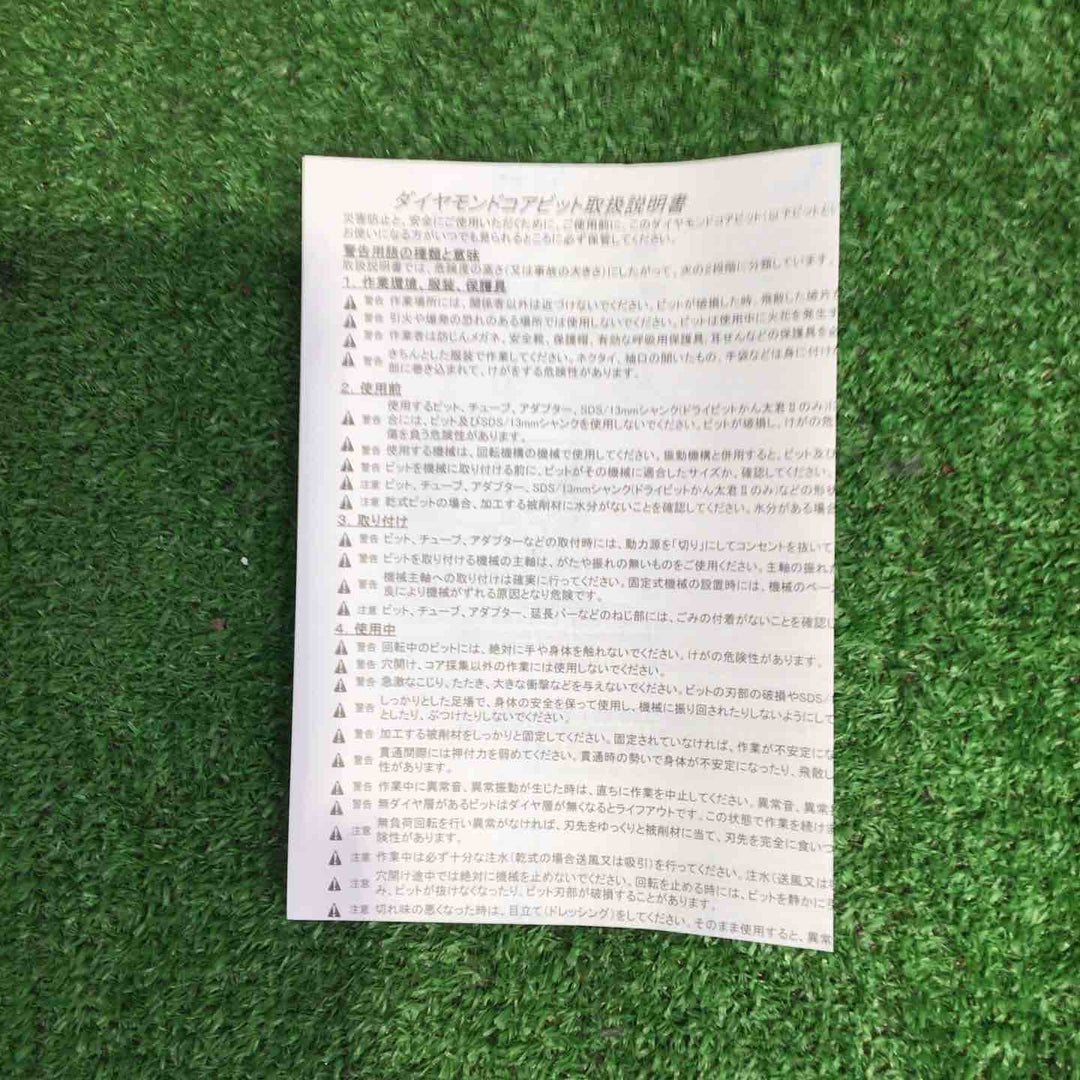 ダイヤモンドコアビット取扱説明書
災害防止と、安全にご使用いただくために、ご使用前に、このダイヤモンドコアビット(以下ビットとい
お使いになる方がいつでも見られるところに必ず保管してください。
警告用語の種類と意味
取扱説明書では、危険度の高さ(又は事故の大きさ)にしたがって、次の2段階に分類しています。
1. 作業環境、服装、保護具
警告 作業場所には、関係者以外は近づけないでください。ビットが破損した時、飛散した破片が
警告 引火や爆発の恐れのある場所では使用しないでください。ビットは使用中に火花を発生す
警告 作業者は防じんメガネ、安全靴、保護帽、有効な呼吸用保護具、耳せんなどの保護具を必
警告 きちんとした服装で作業してください。ネクタイ、袖口の開いたもの、手袋などは身に付け
部に巻き込まれて、けがをする危険性があります。
2. 使用前
使用するビット、チューブ、アダプター、SDS/13mmシャンク(ドライビットかん太君Ⅱのみ)に
警告 合には、ビット及びSDS/13mmシャンクを使用しないでください。ビットが破損し、けがの危
傷を負う危険性があります。
警告 使用する機械は、回転機構の機械で使用してください。振動機構と併用すると、ビット及び
警告 ビットを機械に取り付ける前に、ビットがその機械に適合したサイズか、確認してください。
注意 ビット、チューブ、アダプター、SDS/13mmシャンク(ドライビットかん太君Ⅱのみ)などの形状
注意 乾式ビットの場合、加工する被削材に水分がないことを確認してください。水分がある場合
3. 取り付け
警告 ビット、チューブ、アダプターなどの取付時には、動力源を「切り」にしてコンセントを抜いて
警告 ビットを取り付ける機械の主軸は、がたや振れの無いものをご使用ください。主軸の振れが
警告 機械主軸への取り付けは確実に行ってください。固定式機械の設置時には、機械のベー
良により機械がずれる原因となり危険です。
注意 ビット、チューブ、アダプター、延長バーなどのねじ部には、ごみの付着がないことを確認し
4. 使用中
警告 回転中のビットには、絶対に手や身体を触れないでください。けがの危険性があります。
警告 穴開け、コア採集以外の作業には使用しないでください。
警告 急激なこじり、たたき、大きな衝撃などを与えないでください。ビットの刃部の破損やSDS/
警告 しっかりとした足場で、身体の安全を保って使用し、機械に振り回されたりしないようにして
としたり、ぶつけたりしないでください。
警告 加工する被削材をしっかりと固定してください。固定されていなければ、作業が不安定にな
警告 貫通間際には押付力を弱めてください。貫通時の勢いで身体が不安定になったり、飛散し
性があります。
警告 作業中に異常音、異常振動が生じた時は、直ちに作業を中止してください。異常音、異常
警告 無ダイヤ層があるビットはダイヤ層が無くなるとライフアウトです。この状態で作業を続け
注意 無負荷回転を行い異常がなければ、刃先をゆっくりと被削材に当て、刃先を完全に食いつ
険性があります。
注意 作業中は必ず十分な注水(乾式の場合送風又は吸引)を行ってください。注水(送風又は
注意 穴開け途中では絶対に機械を止めないでください。回転を止める時には、ビットを静かに引
み、ビットが抜けなくなったり、ビット刃部が破損することがあります。
注意 切れ味の悪くなった時は、目立て(ドレッシング)をしてください。そのまま使用すると、異常